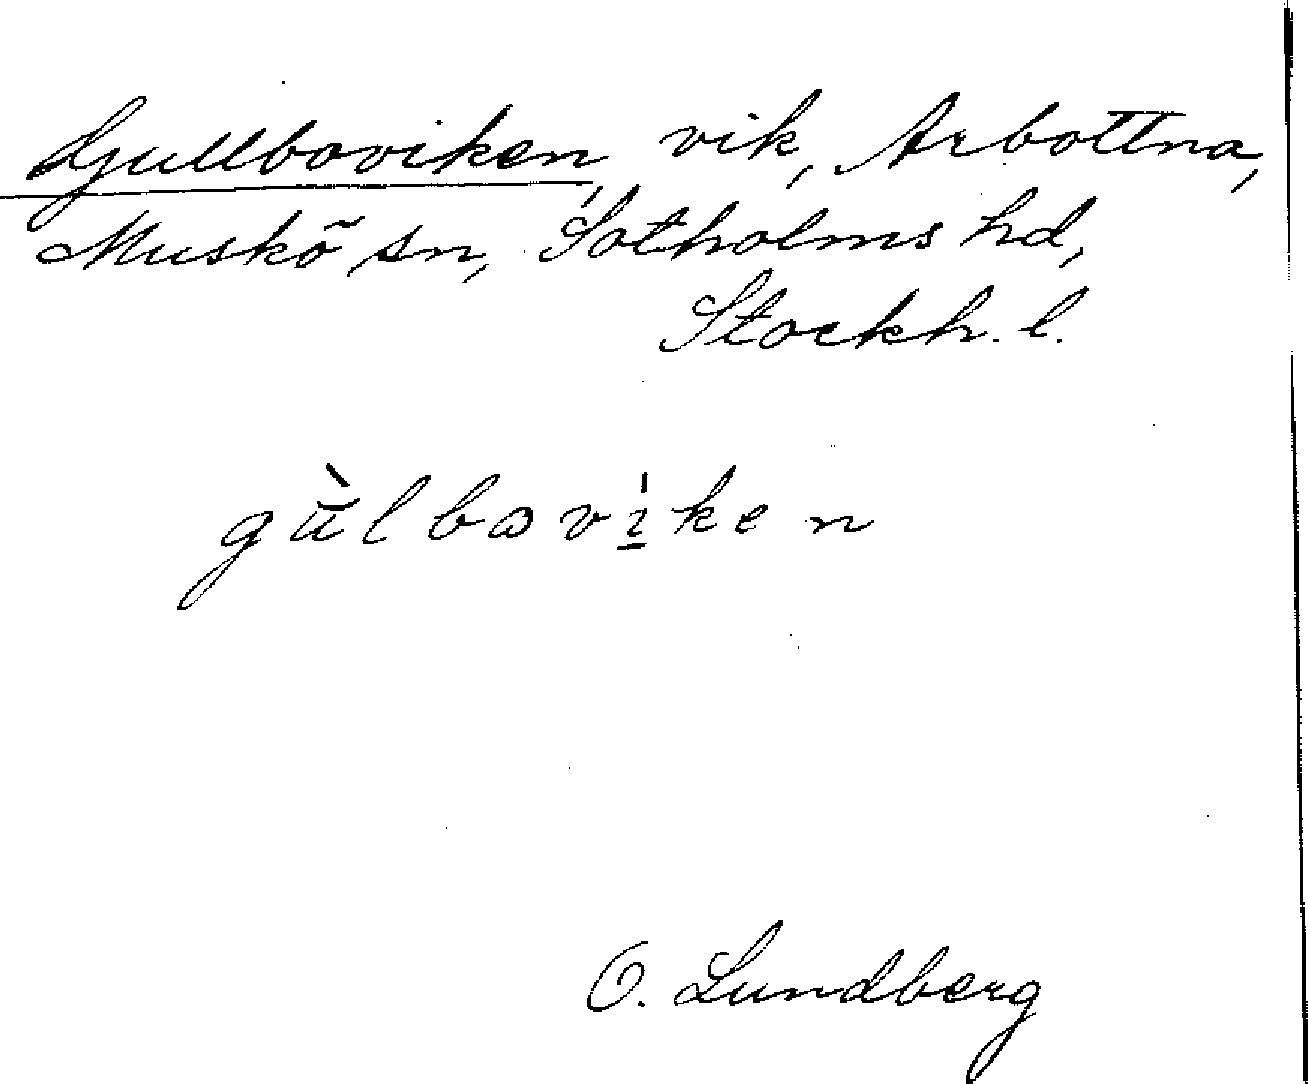 Gullboviken, vik, Arbottna,
Muskö sn, Sotholms hd,
Stockh. l.
gu̇̀lbωvi̱̍ken
O. Lundberg